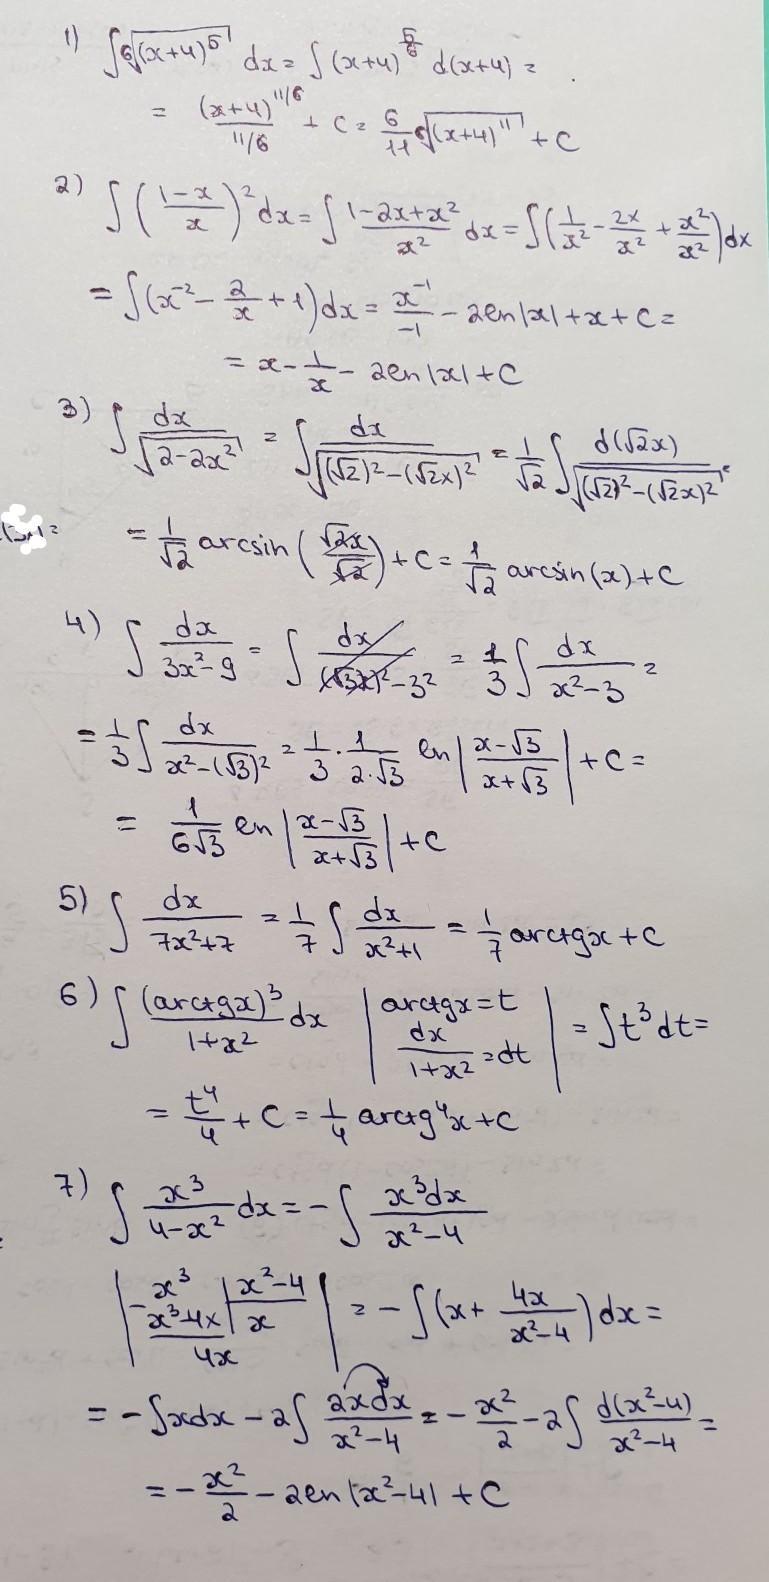 1) ∫ ⁶√((x+4)⁵) dx = ∫ (x+4)^(5/6) d(x+4) =
= (x+4)^(11/6) / (11/6) + C = 6/11 ⁶√((x+4)¹¹) + C
2) ∫ ((1-x)/x)² dx = ∫ (1-2x+x²)/x² dx = ∫ (1/x² - 2x/x² + x²/x²) dx
= ∫ (x⁻² - 2/x + 1) dx = x⁻¹/-1 - 2ln|x| + x + C =
= x - 1/x - 2ln|x| + C
3) ∫ dx/√(2-2x²) = ∫ dx/√((√2)²-(√2x)²) = 1/√2 ∫ d(√2x)/√((√2)²-(√2x)²) =
= 1/√2 arcsin(√2x/√2) + C = 1/√2 arcsin(x) + C
4) ∫ dx/(3x²-9) = ∫ dx/((√3x)²-3²) = 1/3 ∫ dx/(x²-3) =
= 1/3 ∫ dx/(x²-(√3)²) = 1/3 · 1/(2·√3) ln|(x-√3)/(x+√3)| + C =
= 1/(6√3) ln|(x-√3)/(x+√3)| + C
5) ∫ dx/(7x²+7) = 1/7 ∫ dx/(x²+1) = 1/7 arctgx + C
6) ∫ (arctgx)³/(1+x²) dx | arctgx = t dx/(1+x²) = dt | = ∫ t³ dt =
= t⁴/4 + C = 1/4 arctg⁴x + C
7) ∫ x³/(4-x²) dx = - ∫ x³dx/(x²-4)
| -x³ | x²-4 x³-4x | x 4x | = - ∫ (x + 4x/(x²-4)) dx =
= - ∫ xdx - 2 ∫ 2xdx/(x²-4) = - x²/2 - 2 ∫ d(x²-4)/(x²-4) =
= - x²/2 - 2ln|x²-4| + C